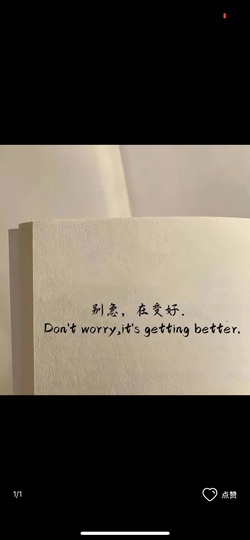 别急，在变好.
Don't worry,it's getting better.
1/1
点赞